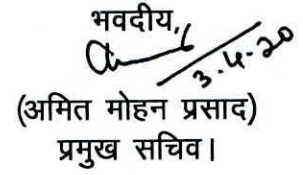 भवदीय,
3.4.20
(अमित मोहन प्रसाद)
प्रमुख सचिव।